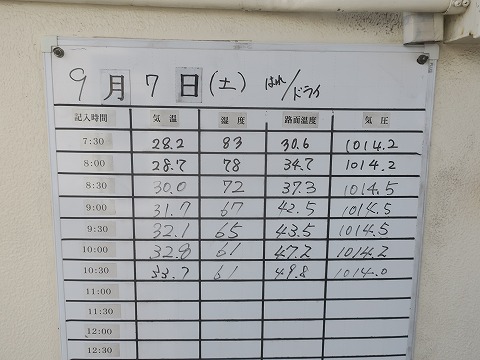 9月7日(土) はれ/ドライ
記入時間 気温 湿度 路面温度 気圧
7:30 28.2 83 30.6 1014.2
8:00 28.7 78 34.7 1014.2
8:30 30.0 72 37.3 1014.5
9:00 31.7 67 42.5 1014.5
9:30 32.1 65 43.5 1014.5
10:00 32.8 61 47.2 1014.2
10:30 33.7 61 49.8 1014.0
11:00
11:30
12:00
12:30